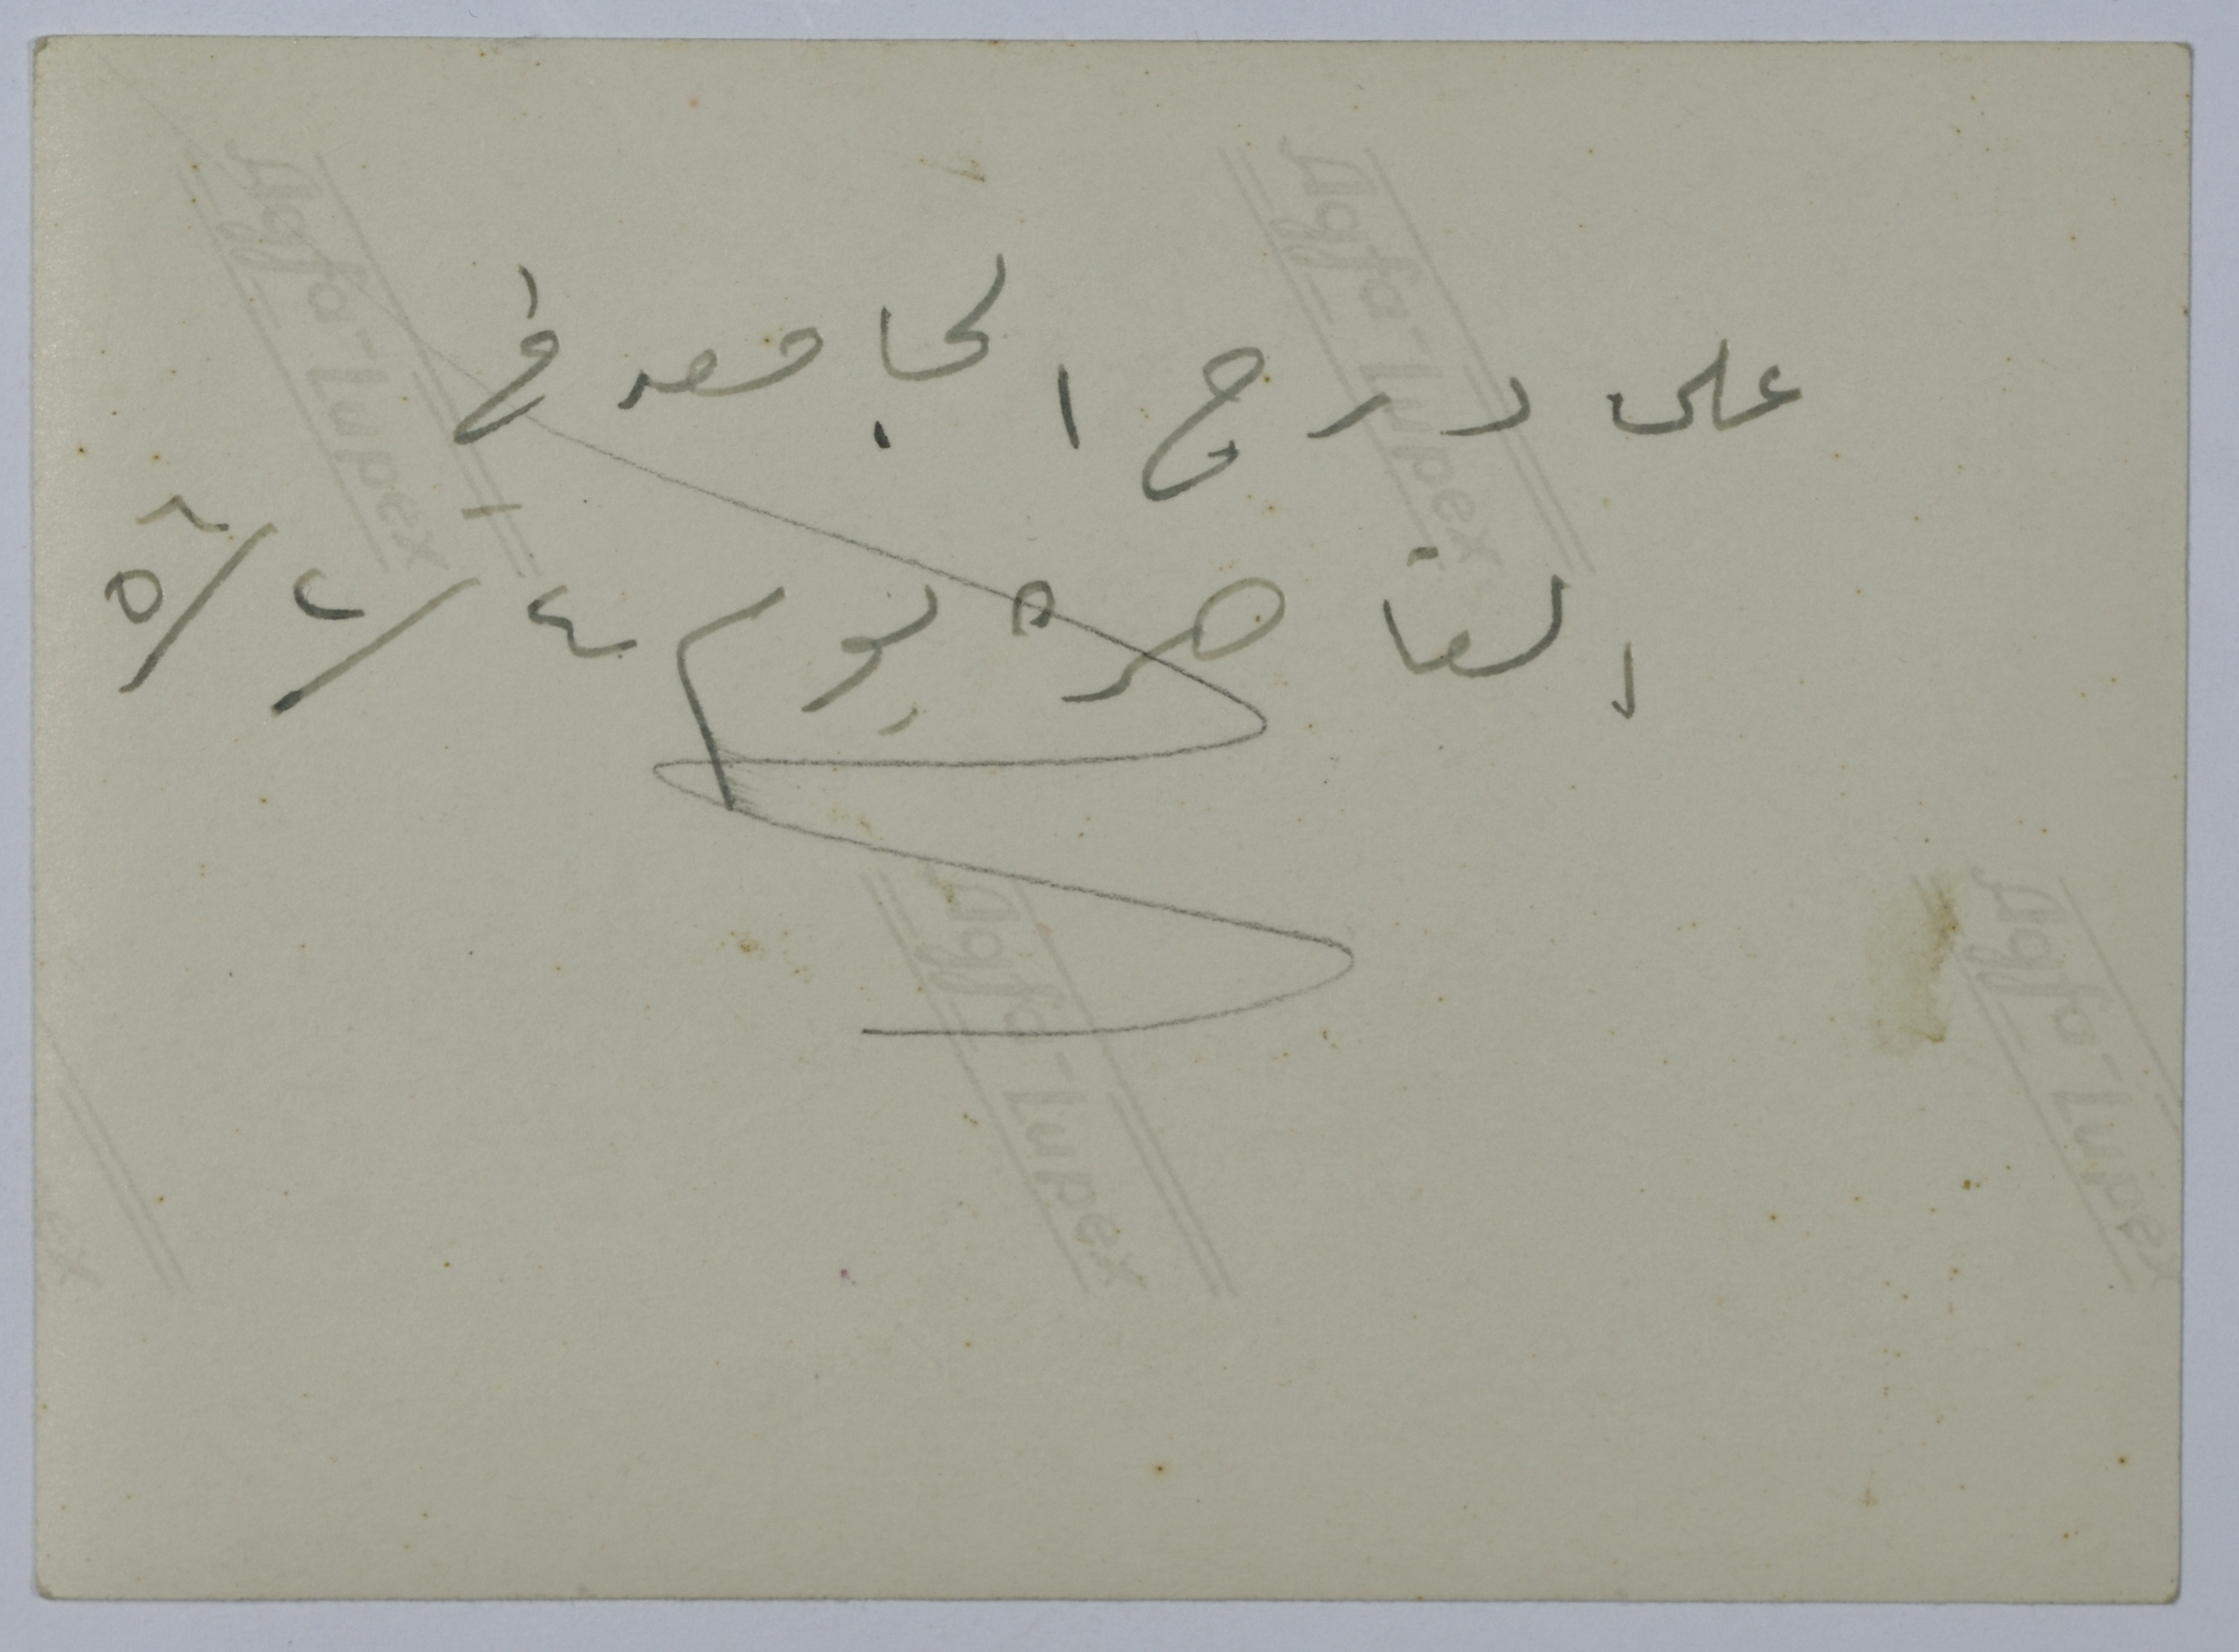 على درج الجامعه في
القاهره يوم ٤/٢/
Agfa-Lupex
Agfa-Lupex
Agfa-Lupex
Agfa-Lupex
ex